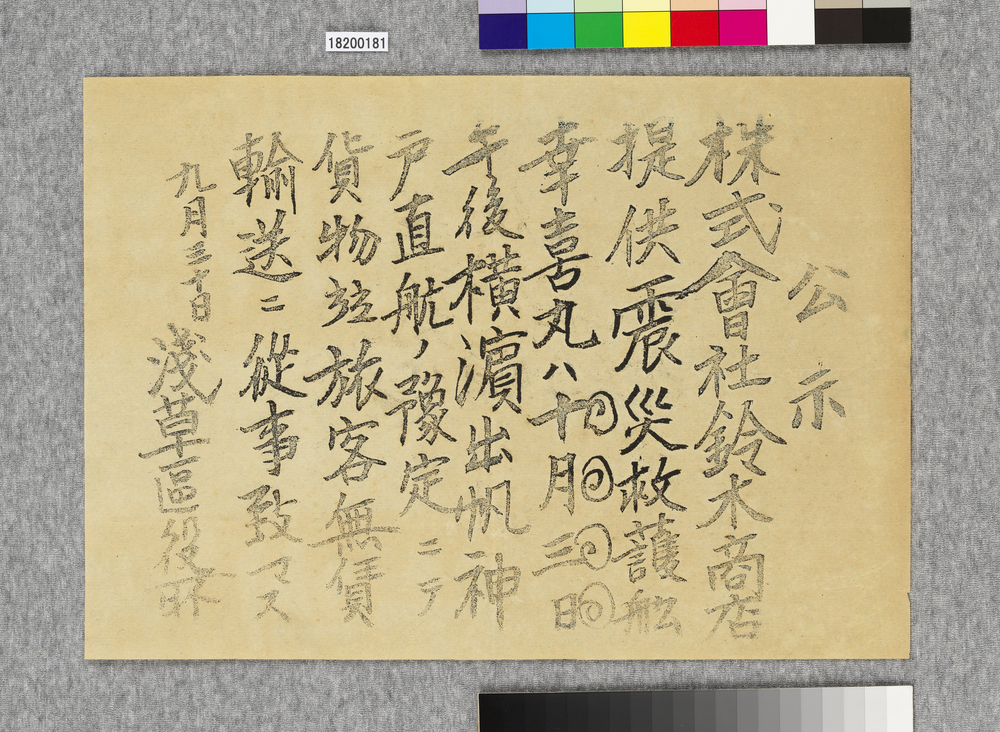 公示
株式會社鈴木商店
提供震災救護舩
幸喜丸ハ十月三日
午後横濱出帆神
戸直航ノ豫定ニテ
貨物竝旅客無賃
輸送ニ從事致マス
九月三十日
淺草區役所
18200181